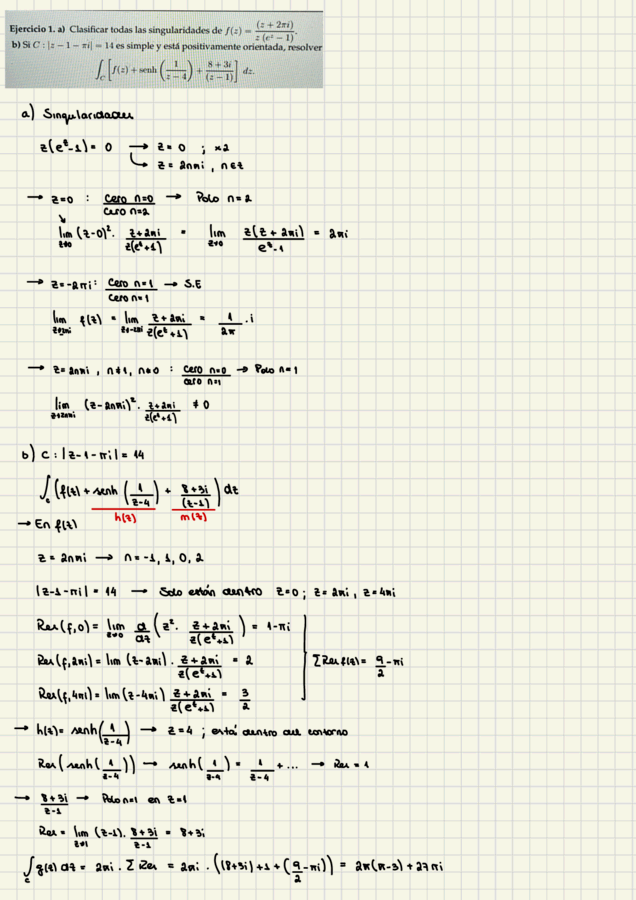 Ejercicio 1. a) Clasificar todas las singularidades de f(z) = (z + 2πi) / (z (e^z − 1)).
b) Si C : |z − 1 − πi| = 14 es simple y está positivamente orientada, resolver
∫_C [ f(z) + senh (1/(z − 4)) + (8 + 3i)/(z − 1) ] dz.
a) Singularidades
z(e^z - 1) = 0 → z = 0 ; x2
↳ z = 2nπi , n ∈ Z
→ z=0 : cero n=0 / cero n=2 → Polo n=2
lim z→0 (z-0)^2 · (z+2πi) / (z(e^z+1)) = lim z→0 z(z+2πi) / (e^z-1) = 2πi
→ z=-2πi : cero n=1 / cero n=1 → S.E
lim z→-2πi f(z) = lim z→-2πi (z+2πi) / (z(e^z+1)) = 1/2π · i
→ z=2nπi , n≠1, n≠0 : cero n=0 / cero n=1 → Polo n=1
lim z→2nπi (z-2nπi)^2 · (z+2πi) / (z(e^z+1)) ≠ 0
b) C : |z-1-πi| = 14
∫_C (f(z) + senh (1/(z-4)) + (8+3i)/(z-1)) dz
h(z) m(z)
→ En f(z)
z = 2nπi → n = -1, 1, 0, 2
|z-1-πi| = 14 → Solo están dentro z=0 ; z=2πi , z=4πi
Res(f,0) = lim z→0 d/dz (z^2 · (z+2πi) / (z(e^z+1))) = 1-πi
Res(f,2πi) = lim (z-2πi) · (z+2πi) / (z(e^z+1)) = 2
ΣRes f(z) = 9/2 - πi
Res(f,4πi) = lim (z-4πi) (z+2πi) / (z(e^z+1)) = 3/2
→ h(z) = senh (1/(z-4)) → z=4 ; está dentro del contorno
Res (senh (1/(z-4))) → senh (1/(z-4)) = 1/(z-4) + ... → Res = 1
→ (8+3i)/(z-1) → Polo n=1 en z=1
Res = lim z→1 (z-1) · (8+3i)/(z-1) = 8+3i
∫_C g(z) dz = 2πi · Σ Res = 2πi · ((8+3i)+1+(9/2-πi)) = 2π(π-3) + 27πi